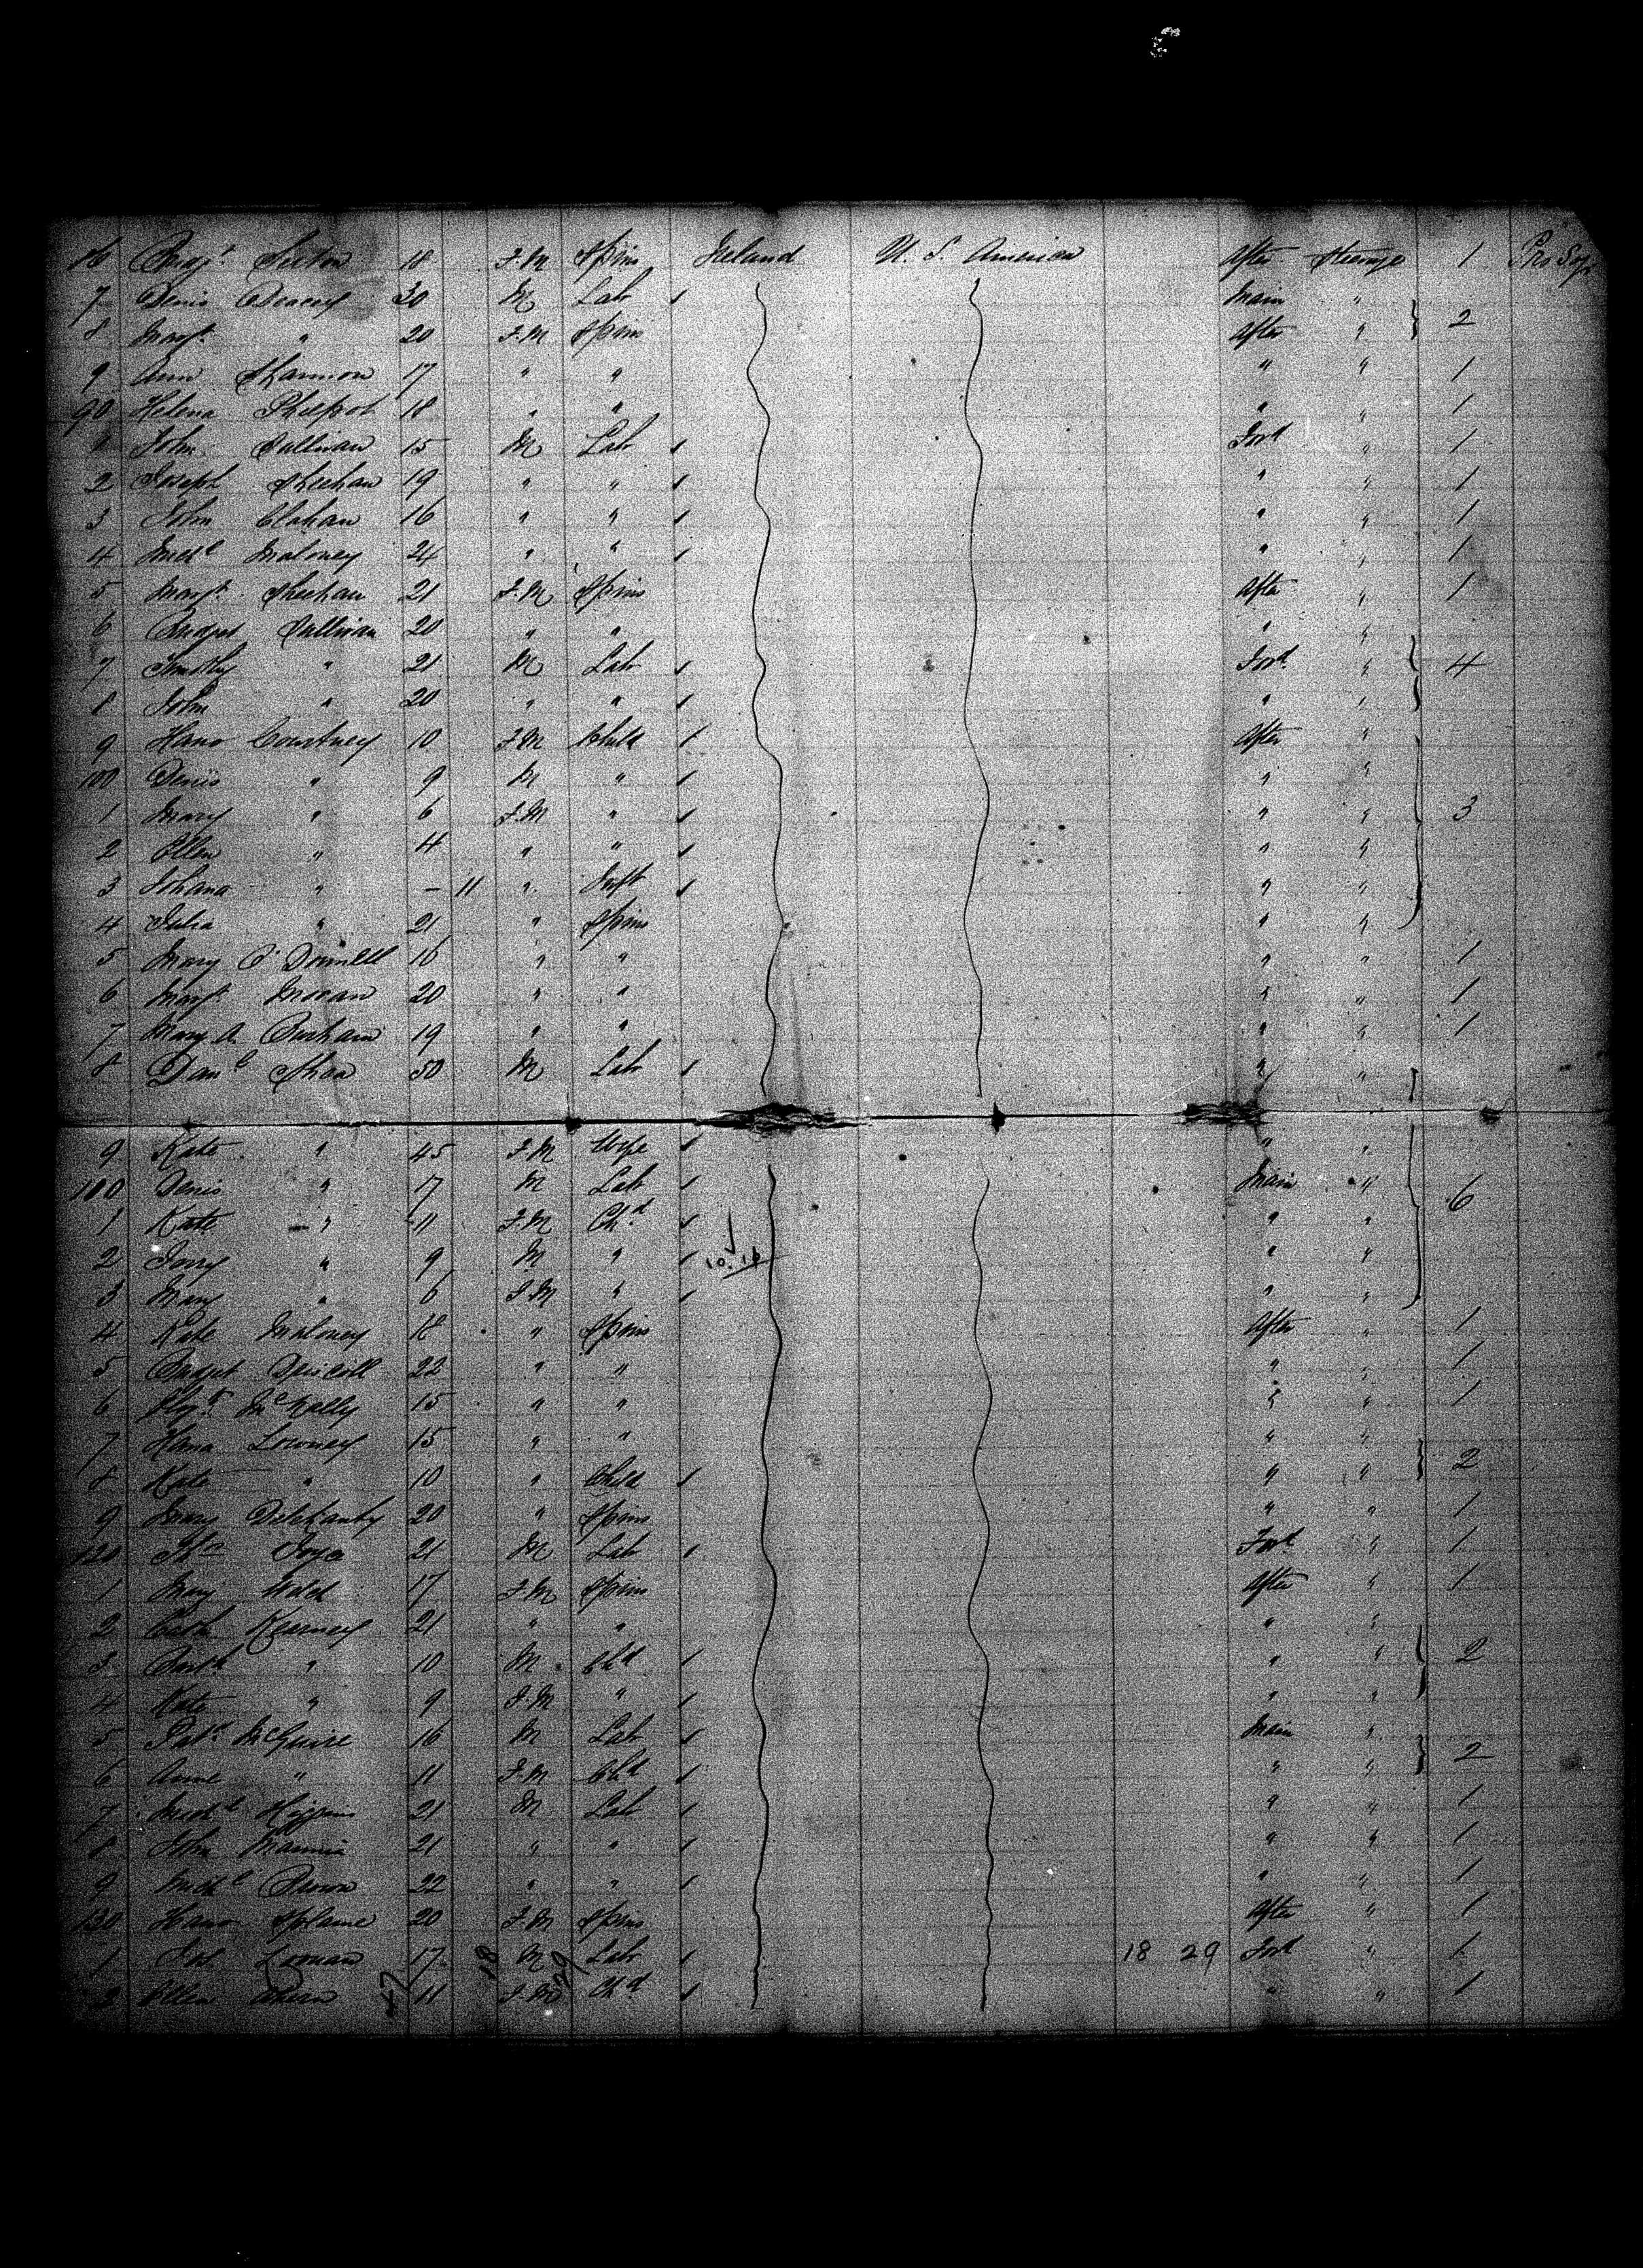 86 Bridgt Sexton 18 F.M Spins Ireland U. S. America After Steerage 1 Pro Soj
7 Denis Deacey 30 M Lab Main " 2
8 Margt " 20 F.M Spins After "
9 Ann Shannon 17 " " " " 1
90 Helena Philpot 18 " " " " 1
1 John Sullivan 15 M Lab Ford " 1
2 Joseph Sheehan 19 " " " " 1
3 John Clahan 16 " " " " 1
4 Michl Maloney 24 " " " " 1
5 Margt Sheehan 21 F.M Spins After " 1
6 Bridget Sullivan 20 " " " "
7 Timothy " 21 M Lab Ford " 4
8 John " 20 " " " "
9 Hano Courtney 10 F.M Child After "
100 Denis " 9 M " " "
1 Mary " 6 F.M " " " 3
2 Ellen " 4 " " " "
3 Johana " - 11 " Inft " "
4 Julia " 21 " Spins " "
5 Mary O'Donnell 16 " " " " 1
6 Margt Moran 20 " " " " 1
7 Mary A. 19 " " " " 1
8 Danl Shea 50 M Lab " "
9 Kate " 45 F.M Wife " "
110 Denis " 17 M Lab Main " 6
1 Kate " 11 F.M Chd " "
2 " 9 M " " "
3 Mary " 6 F.M " " "
4 Kate Maloney 18 " Spins After " 1
5 Bridget Driscoll 22 " " " " 1
6 McNally 15 " " " " 1
7 Hana Lowney 15 " " " " 2
8 Kate " 10 " Child " "
9 Mary Delehanty 20 " Spins " " 1
120 Thos Joyce 21 M Lab Ford " 1
1 Mary Walsh 17 F.M Spins After " 1
2 Cath Kearney 21 " " " "
3 Barth " 10 M Chd " " 2
4 Kate " 9 F.M " " "
5 Patk McGuire 16 M Lab Main "
6 Anne " 11 F.M Chd " " 2
7 Michl Higgins 21 M Lab " " 1
8 John Mannix 21 " " " " 1
9 Michl Brown 22 " " " " 1
130 Hano Splane 20 F.M Spins After " 1
1 Noonan 17 M Lab 18 29 Ford " 1
2 Ellen Ahern 11 F.M Chd " " 1